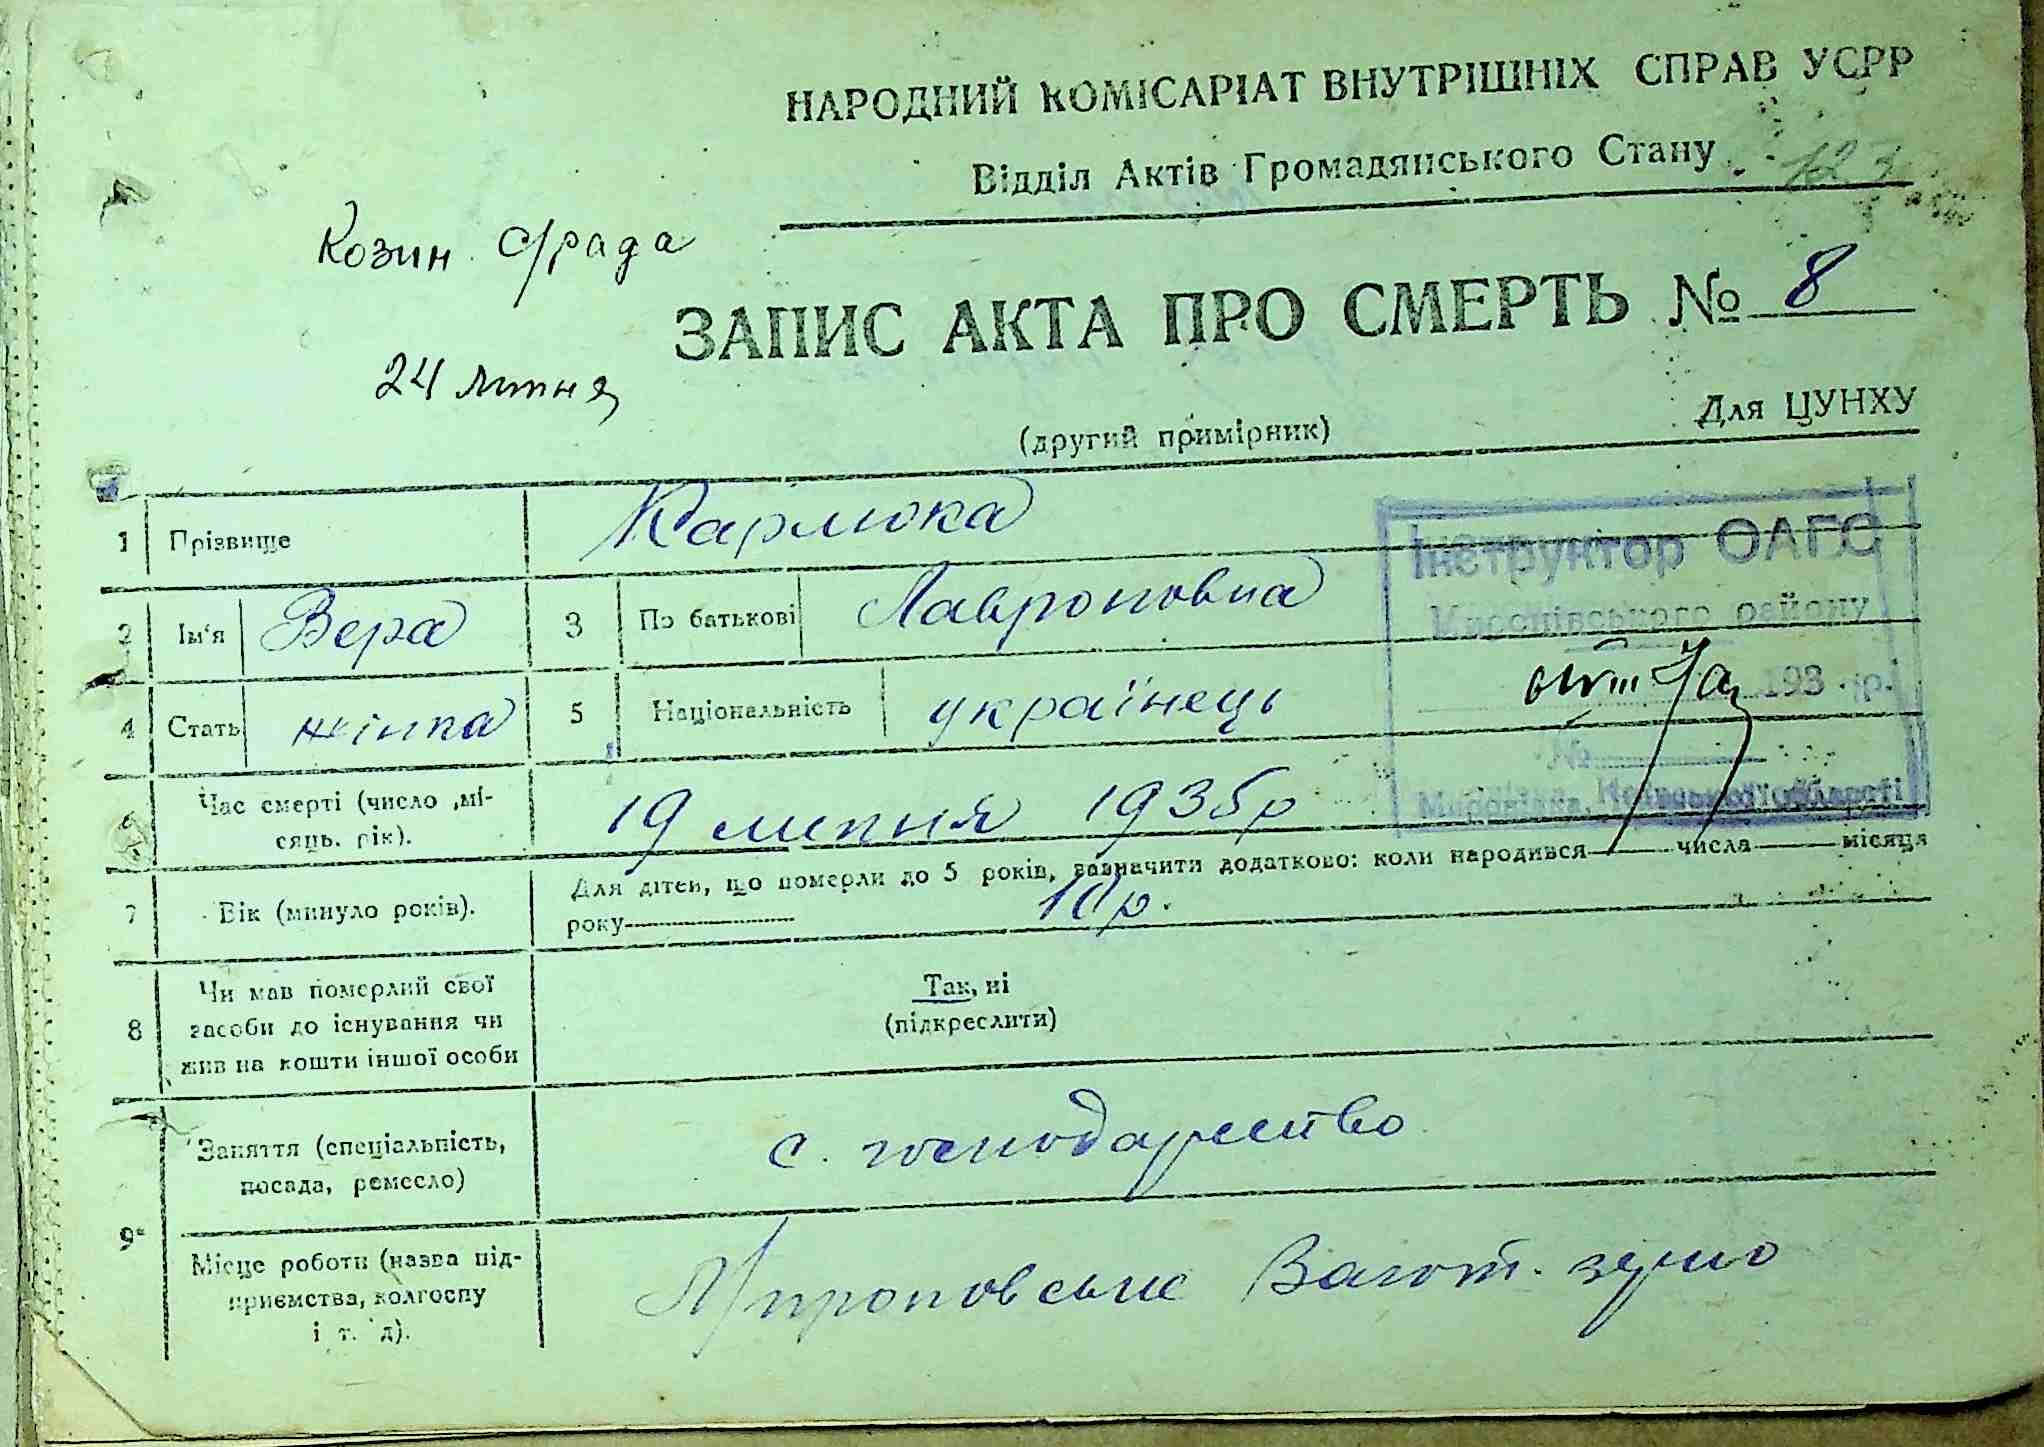 НАРОДНИЙ КОМІСАРІАТ ВНУТРІШНІХ СПРАВ УСРР
Відділ Актів Громадянського Стану
123
Козин с/рада
ЗАПИС АКТА ПРО СМЕРТЬ № 8
24 липня
(другий примірник)
Для ЦУНХУ
1 Прізвище Карлюка
Інструктор ОАГС
2 Ім'я Вера 3 По батькові
Миронівського району
4 Стать жінка 5 Національність українець
193 р.
№
6 Час смерті (число, мі-
сяць, рік). 19 липня 1935р
Миронівка, Київської області
Для дітей, що померли до 5 років, зазначити додатково: коли народився числа місяця
7 Вік (минуло років). року 10р.
8 Чи мав померлий свої
засоби до існування чи
жив на кошти іншої особи
Так, ні
(підкреслити)
9 Заняття (спеціальність,
посада, ремесло) с. господарство
Місце роботи (назва під-
приємства, колгоспу
і т. д). Загот. зерно